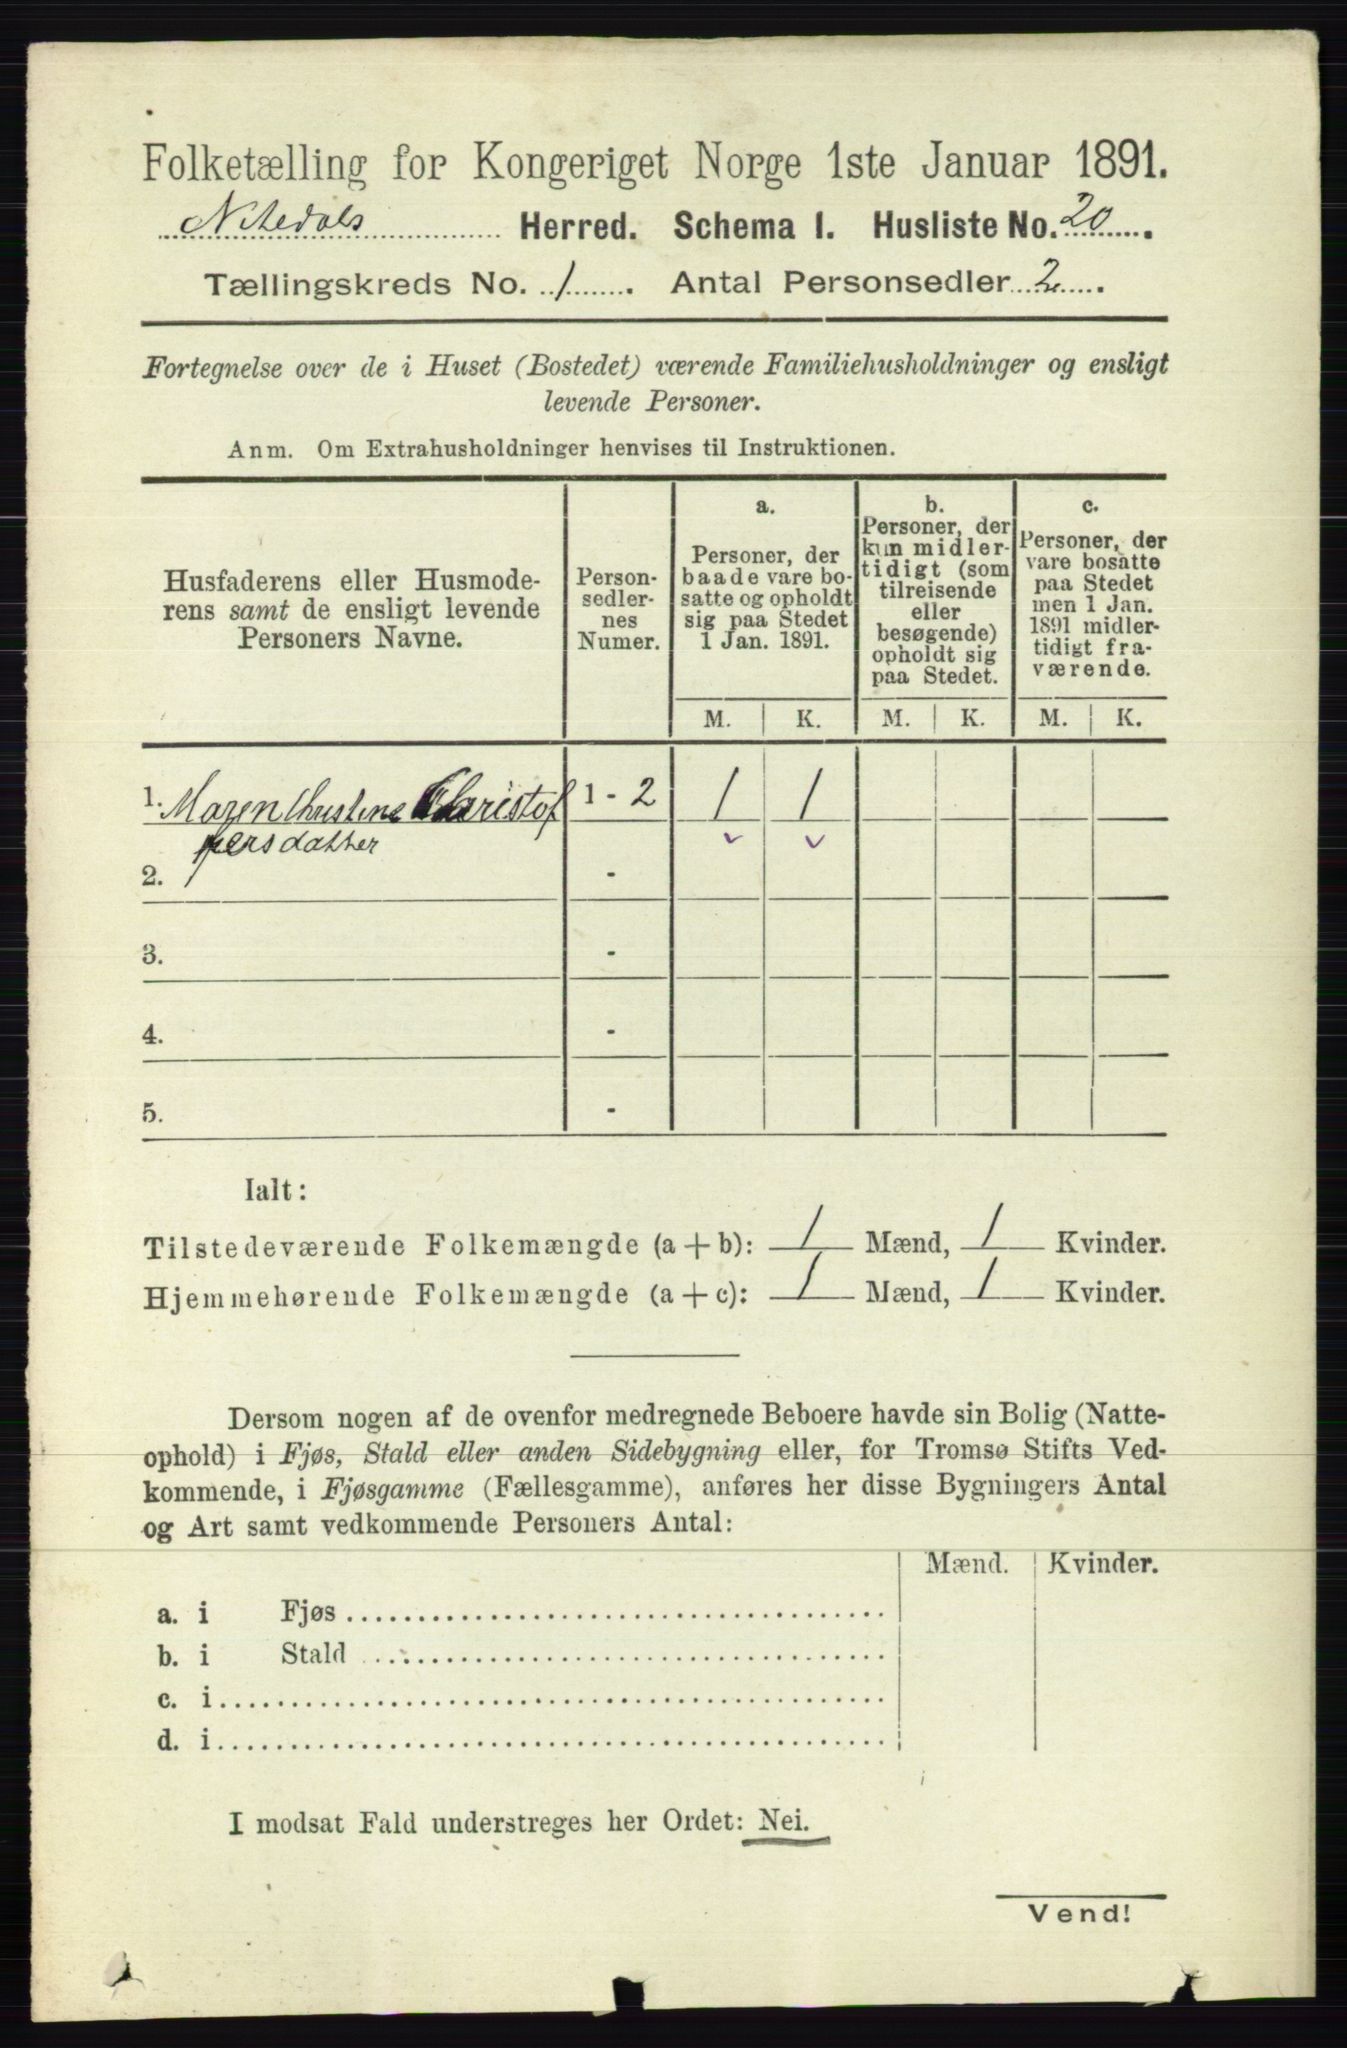 Folketælling for Kongeriget Norge 1ste Januar 1891.
Nitedals Herred. Schema I. Husliste No. 20.
Tællingskreds No. 1. Antal Personsedler 2.
Fortegnelse over de i Huset (Bostedet) værende Familiehusholdninger og ensligt
levende Personer.
Anm. Om Extrahusholdninger henvises til Instruktionen.
Husfaderens eller Husmode-
rens samt de ensligt levende
Personers Navne.
Person-
sedler-
nes
Numer.
a.
Personer, der
baade vare bo-
satte og opholdt
sig paa Stedet
1 Jan. 1891.
b.
Personer, der
kun midler-
tidigt (som
tilreisende
eller
besøgende)
opholdt sig
paa Stedet.
c.
Personer, der
vare bosatte
paa Stedet
men 1 Jan.
1891 midler-
tidigt fra-
værende.
M. K. M. K. M. K.
1. Maren Christine Christof 1 - 2 1 1
persdatter
2. -
3. -
4. -
5. -
Ialt:
Tilstedeværende Folkemængde (a + b): 1 Mænd, 1 Kvinder.
Hjemmehørende Folkemængde (a + c): 1 Mænd, 1 Kvinder.
Dersom nogen af de ovenfor medregnede Beboere havde sin Bolig (Natte-
ophold) i Fjøs, Stald eller anden Sidebygning eller, for Tromsø Stifts Ved-
kommende, i Fjøsgamme (Fællesgamme), anføres her disse Bygningers Antal
og Art samt vedkommende Personers Antal:
Mænd. Kvinder.
a. i Fjøs
b. i Stald
c. i
d. i
I modsat Fald understreges her Ordet: Nei.
Vend!